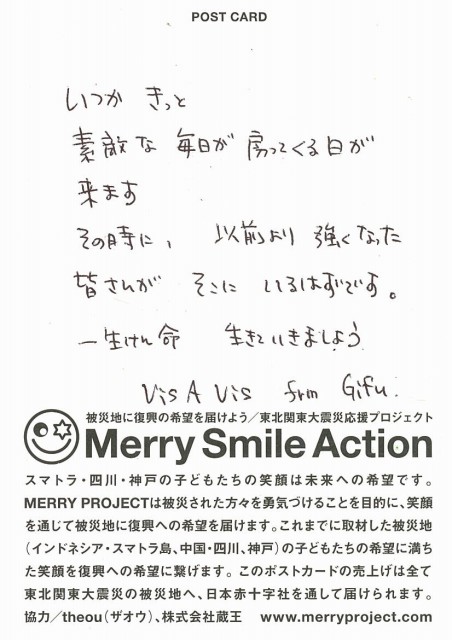 POST CARD
いつか きっと
素敵な 毎日が 戻ってくる日が
来ます
その時に、 以前より 強くなった
皆さんが そこに いるはずです。
一生けん命 生きていきましょう
Vis A Vis from Gifu.
被災地に復興の希望を届けよう／東北関東大震災応援プロジェクト
Merry Smile Action
スマトラ・四川・神戸の子どもたちの笑顔は未来への希望です。
MERRY PROJECTは被災された方々を勇気づけることを目的に、笑顔
を通じて被災地に復興への希望を届けます。これまでに取材した被災地
（インドネシア・スマトラ島、中国・四川、神戸）の子どもたちの希望に満ち
た笑顔を復興への希望に繋げます。このポストカードの売上げは全て
東北関東大震災の被災地へ、日本赤十字社を通して届けられます。
協力／theou（ザオウ）、株式会社蔵王 www.merryproject.com